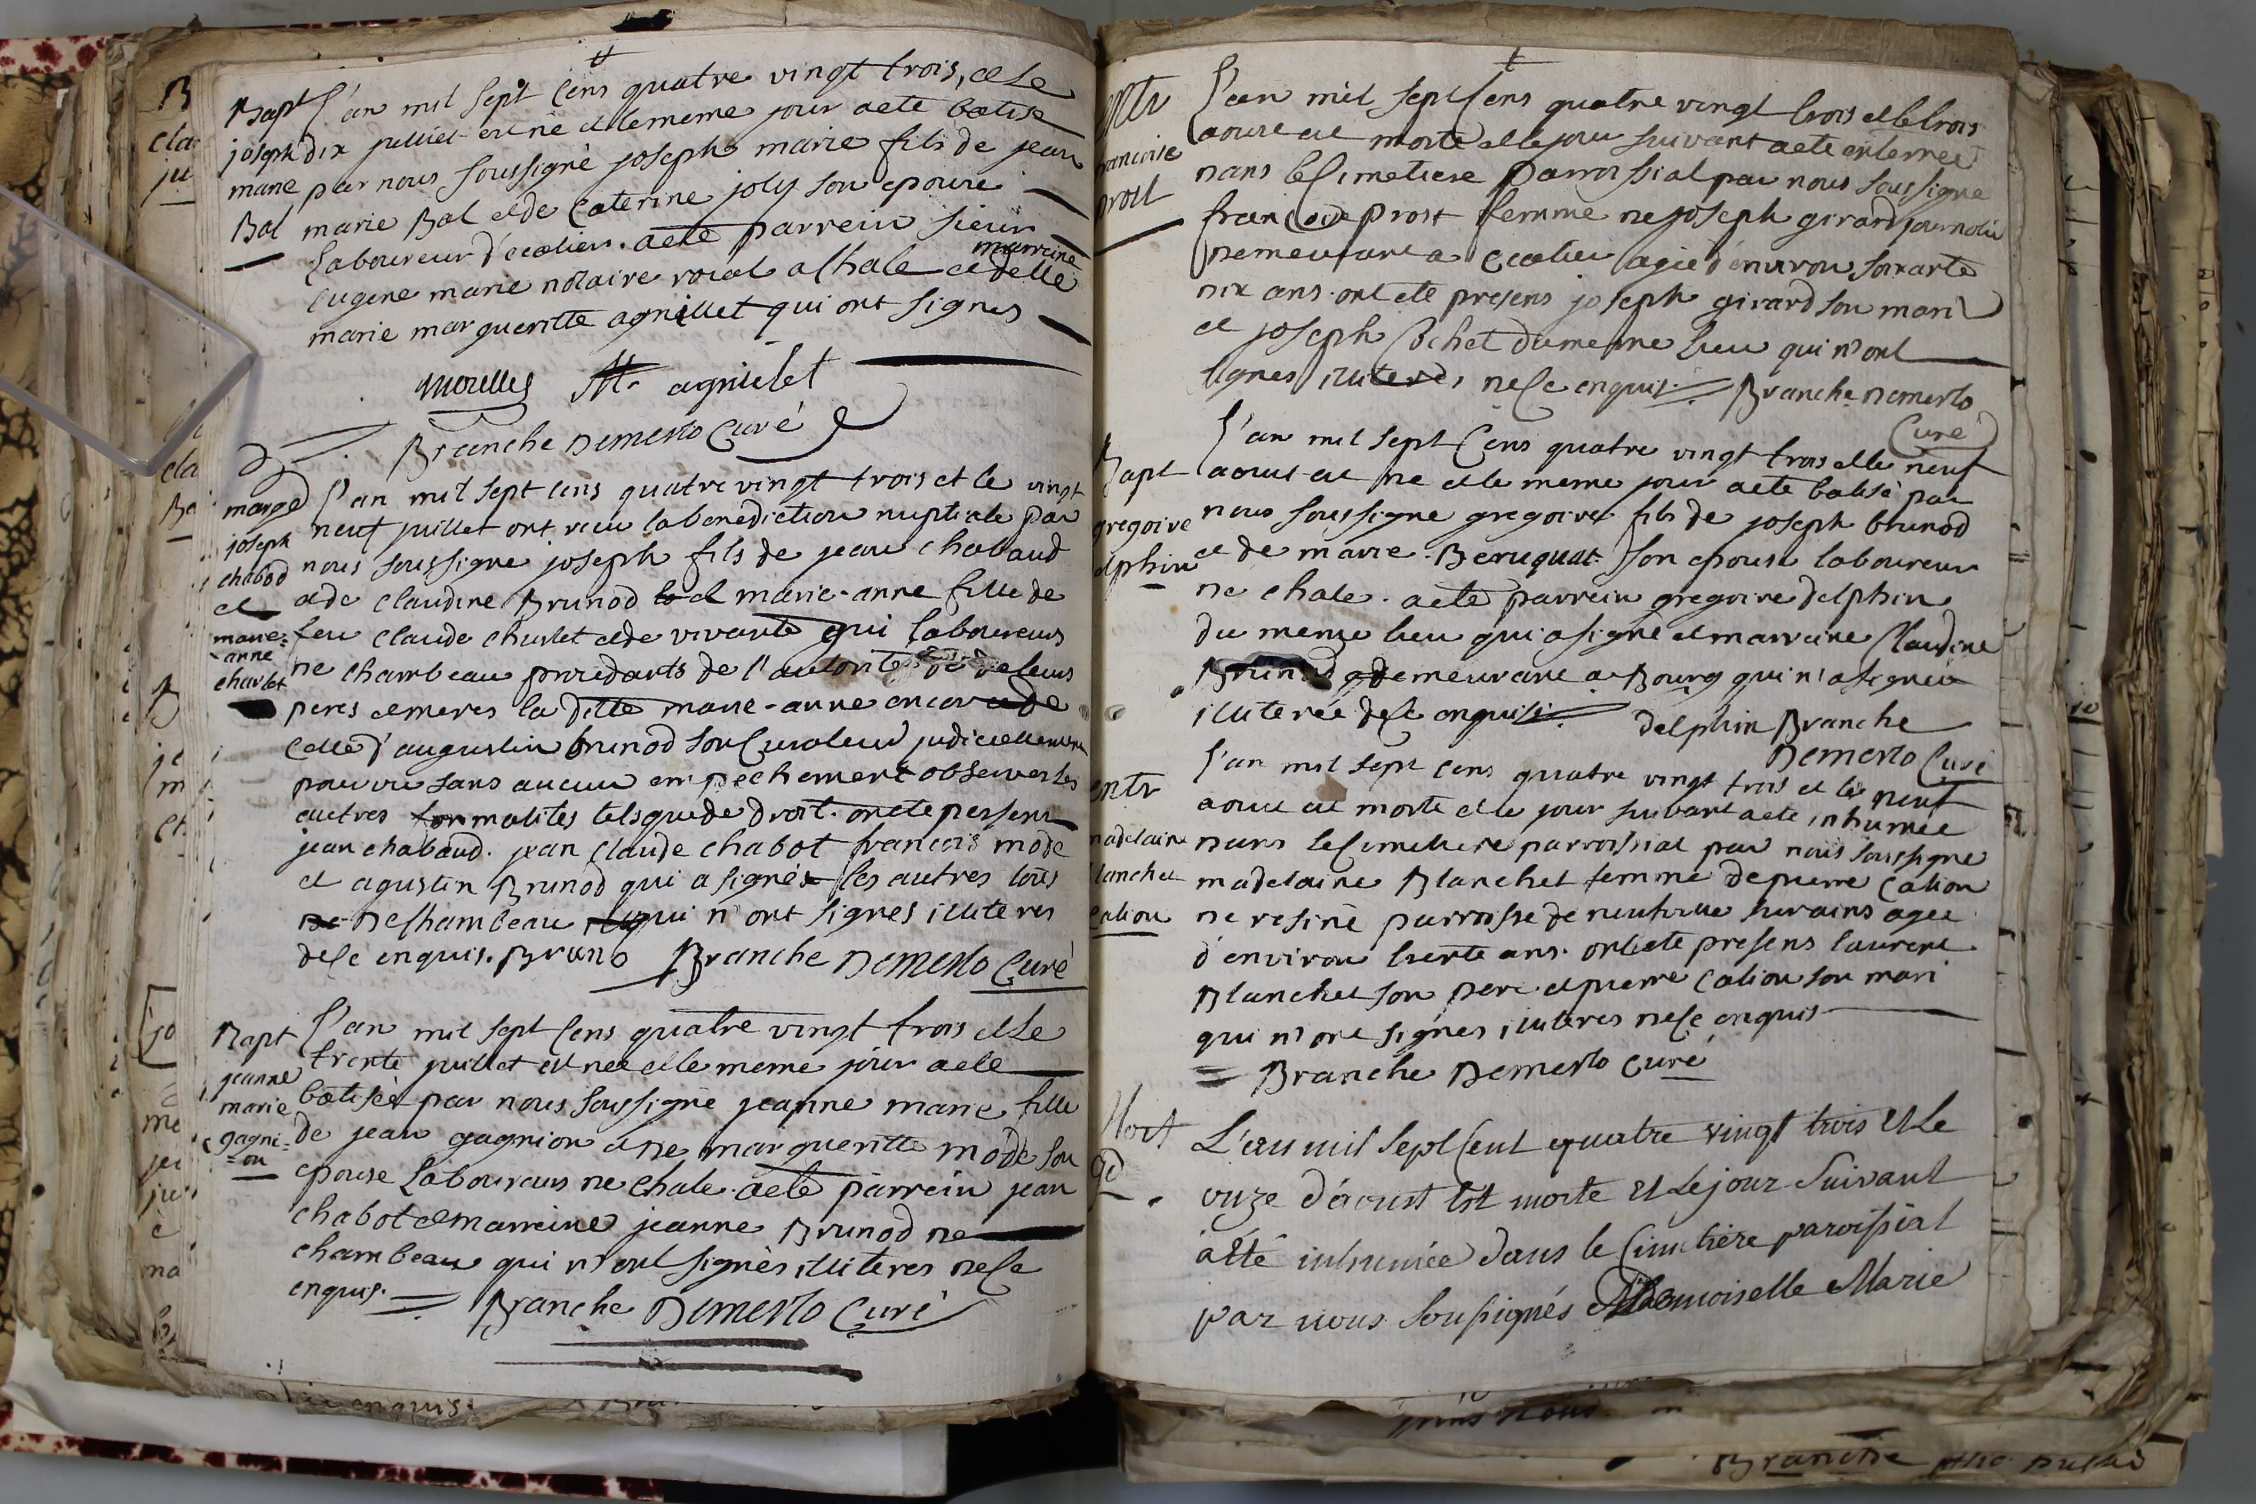 Bapt
joseph
marie
Bal
L'an mil sept cens quatre vingt trois, et le
dix juillet est né et le meme jour a eté batisé
par nous soussigné joseph marie fils de jean
marie Bal et de Caterine joly son epouse
Laboureur d'ecoliers. a eté parrein sieur
Eugene marie notaire roial a Chale et delle
marreine
marie margueritte agnillet qui ont signes
M. agnielet
Branche Demerlo Curé
marge
joseph
chabod
et
marie-
anne
charlet
L'an mil sept cens quatre vingt trois et le vingt
neuf juillet ont recu la benediction nuptiale par
nous soussigne joseph fils de jean chabaud
et de Claudine Brunod et marie-anne fille de
feu Claude et de vivante qui laboureurs
de chambeau de l'autorité de leurs
peres et meres la ditte marie-anne encor de
Celle d'augustin brunod son Curateur judiciellement
pourvu sans aucun empechement observer les
autres formalites tels que de droit. ont ete persens
jean chabaud. jean Claude chabot francois mode
et agustin Brunod qui a signé les autres tous
De Chambeau qui n'ont signes illiteres
de ce enquis. Bruno Branche Demerlo Curé
Bapt
jeanne
marie
gagni=
=on
L'an mil sept Cens quatre vingt trois et le
trente juillet est née et le meme jour a eté
batisée par nous soussigné jeanne marie fille
de jean gagnion et de margueritte mode son
epouse Laboureurs de Chale. a eté parrein jean
chabot et marreine jeanne Brunod de
chambeau qui n'ont signés illiteres de ce
enquis.
Branche Demerlo Curé
entr
francoise
prost
L'an mil sept Cens quatre vingt trois et le trois
aoust est morte et le jour suivant a eté enterrée
dans le Cimetiere parroissial par nous soussigne
francoise prost femme de joseph girard journalier
demeurant a agée d'environ soixante
dix ans. ont eté presens joseph girard son mari
et joseph Cochet du meme lieu qui n'ont
signes illiteres de ce enquis. Branche Demerlo
Curé
Bapt
gregoire
delphin
L'an mil sept Cens quatre vingt trois et le neuf
aoust est né et le meme jour a eté batisé par
nous soussigne gregoire fils de joseph brunod
et de marie. Beruquat. son epouse laboureur
de chale. a eté parrein gregoire delphin
du meme lieu qui a signé et marraine Claudine
Brunod demeurant a Bourg qui n'a signée
illiterée de ce enquise. delphin Branche
Demerlo Curé
entr
madelaine
blanchet
Calion
L'an mil sept cens quatre vingt trois et le neuf
aoust est morte et le jour suivant a eté inhumée
dans le Cimetiere parroissial par nous soussigne
madelaine Blanchet femme de pierre Calion
de resine parroisse de neufville surains agée
d'environ trente ans. ont eté presens laurent
Blanchet son pere. et pierre Calion son mari
qui n'ont signes illiteres de ce enquis
Branche Demerlo Curé
Mort
L'an mil sept Cent quatre vingt trois Et Le
onze d'aoust Est morte Et Le jour Suivant
a Eté inhumée dans le Cimetière paroissial
par nous Soussignés Demoiselle Marie